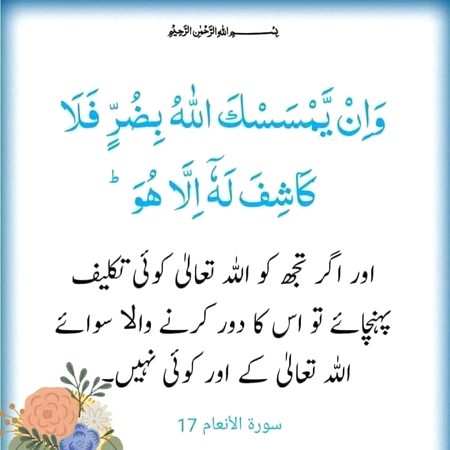 بسم اللہ الرحمن الرحیم
وَاِنْ يَّمْسَسْكَ اللّٰهُ بِضُرٍّ فَلَا
كَاشِفَ لَهٗۤ اِلَّا هُوَ ؕ
اور اگر تجھ کو اللہ تعالیٰ کوئی تکلیف
پہنچائے تو اس کا دور کرنے والا سوائے
اللہ تعالیٰ کے اور کوئی نہیں۔
سورة الأنعام 17